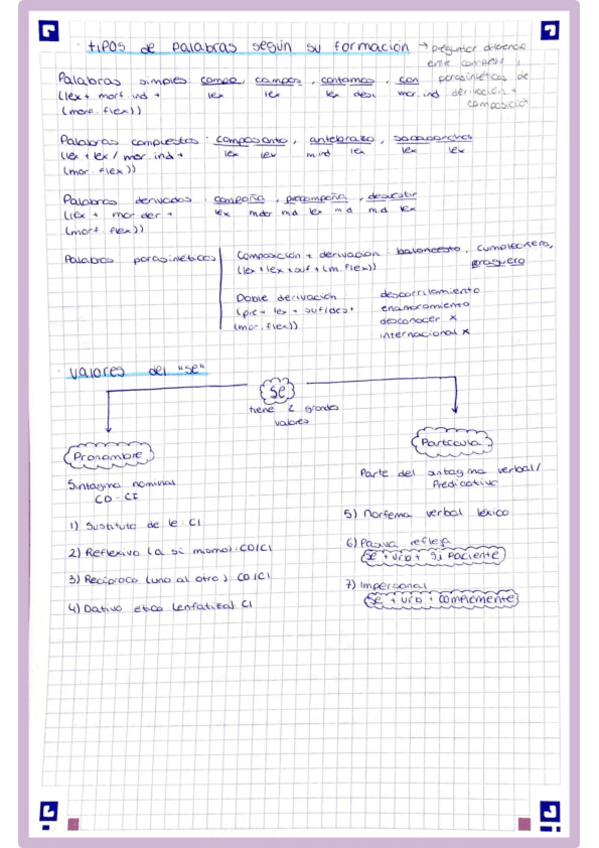 tipos de palabras según su formación → preguntar diferencia
entre compuesta y
parasintéticas de
derivación +
composición
Palabras simples campo, campos, cantamos, con
(lex + morf. ind + lex lex lex desi mor. ind
(morf. flex))
Palabras compuestas: camposanto, antebrazo, sacacorchos
(lex + lex / mor. ind + lex lex m.ind lex lex lex
(mor. flex))
Palabras derivadas: campaña, precampaña,
(lex + mor der + lex m.der m.d lex m.d m.d lex
(morf. flex))
Palabras parasintéticas Composición + derivación: baloncesto, cumpleañero,
(lex + lex + suf + (m. flex)) paragüero
Doble derivación descarrilamiento
(pre + lex + suf/des + enamoramiento
(mor. flex)) desconocer x
internacional x
valores del "se"
Se
tiene 2 grandes
valores
Pronombre
Sintagma nominal
CD - CI
1) Sustituto de le CI
2) Reflexivo (a sí mismo): CD/CI
3) Recíproco (uno al otro): CD/CI
4) Dativo ético (enfático) CI
Partícula
Parte del sintagma verbal/
Predicativo
5) Morfema verbal léxico
6) Pasiva refleja
Se + vrb + Sj paciente
7) Impersonal
Se + vrb + complemento